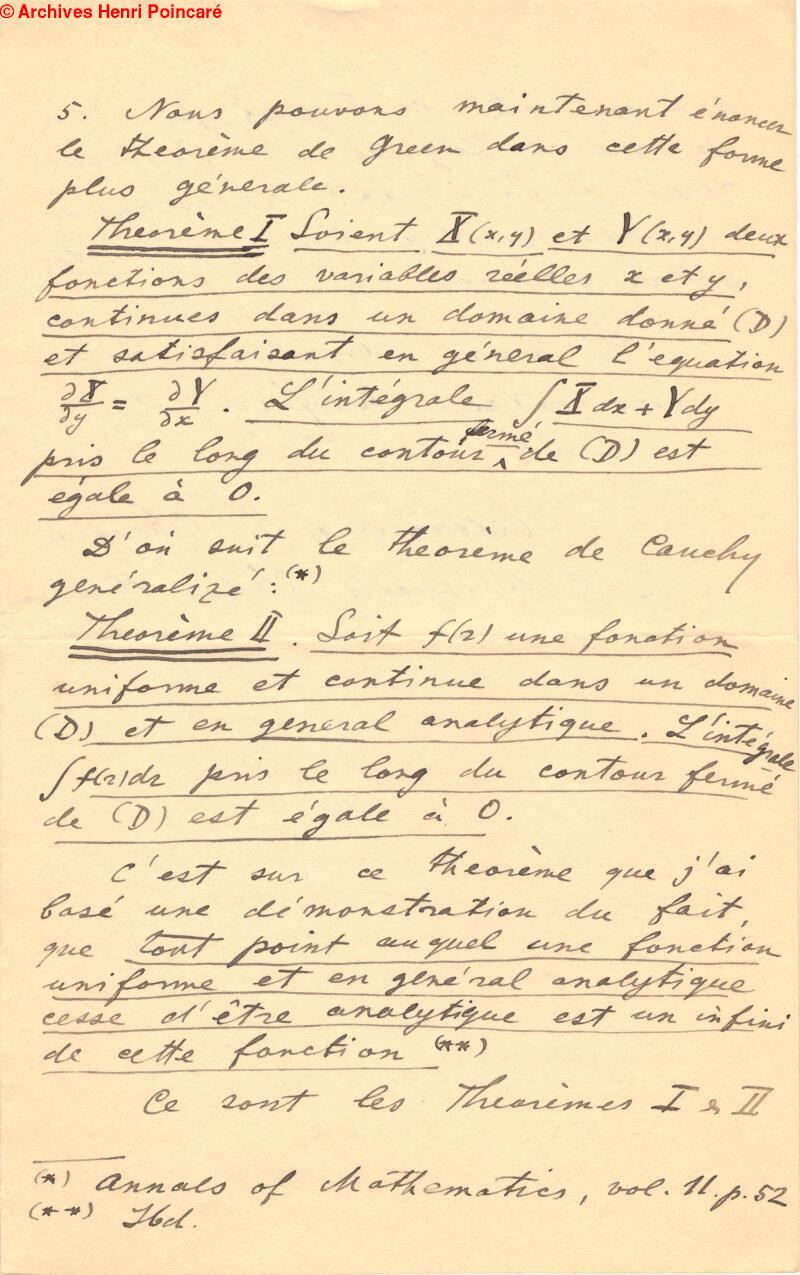 © Archives Henri Poincaré
5. Nous pouvons maintenant énoncer
le theorème de Green dans cette forme
plus génerale.
Theorème I Soient X(x,y) et Y(x,y) deux
fonctions des variables réelles x et y,
continues dans un domaine donné (D)
et satisfaisant en géneral l'equation
∂X/∂y = ∂Y/∂x. L'intégrale ∫ X dx + Y dy
pris le long du contour fermé de (D) est
égale à 0.
D'où suit le theorème de Cauchy
generalizé: (*)
Theorème II. Soit f(z) une fonction
uniforme et continue dans un domaine
(D) et en general analytique. L'intégrale
∫ f(z)dz pris le long du contour fermé
de (D) est égale à 0.
C'est sur ce theorème que j'ai
basé une démonstration du fait,
que tout point auquel une fonction
uniforme et en général analytique
cesse d'être analytique est un infini
de cette fonction (**)
Ce sont les Theorèmes I & II
(*) Annals of Mathematics, vol. 11. p. 52
(**) Ibd.